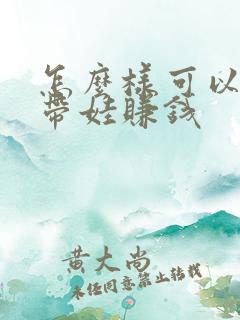 怎麼樣可以
帶娃賺錢
黄大尚
未经同意禁止转载